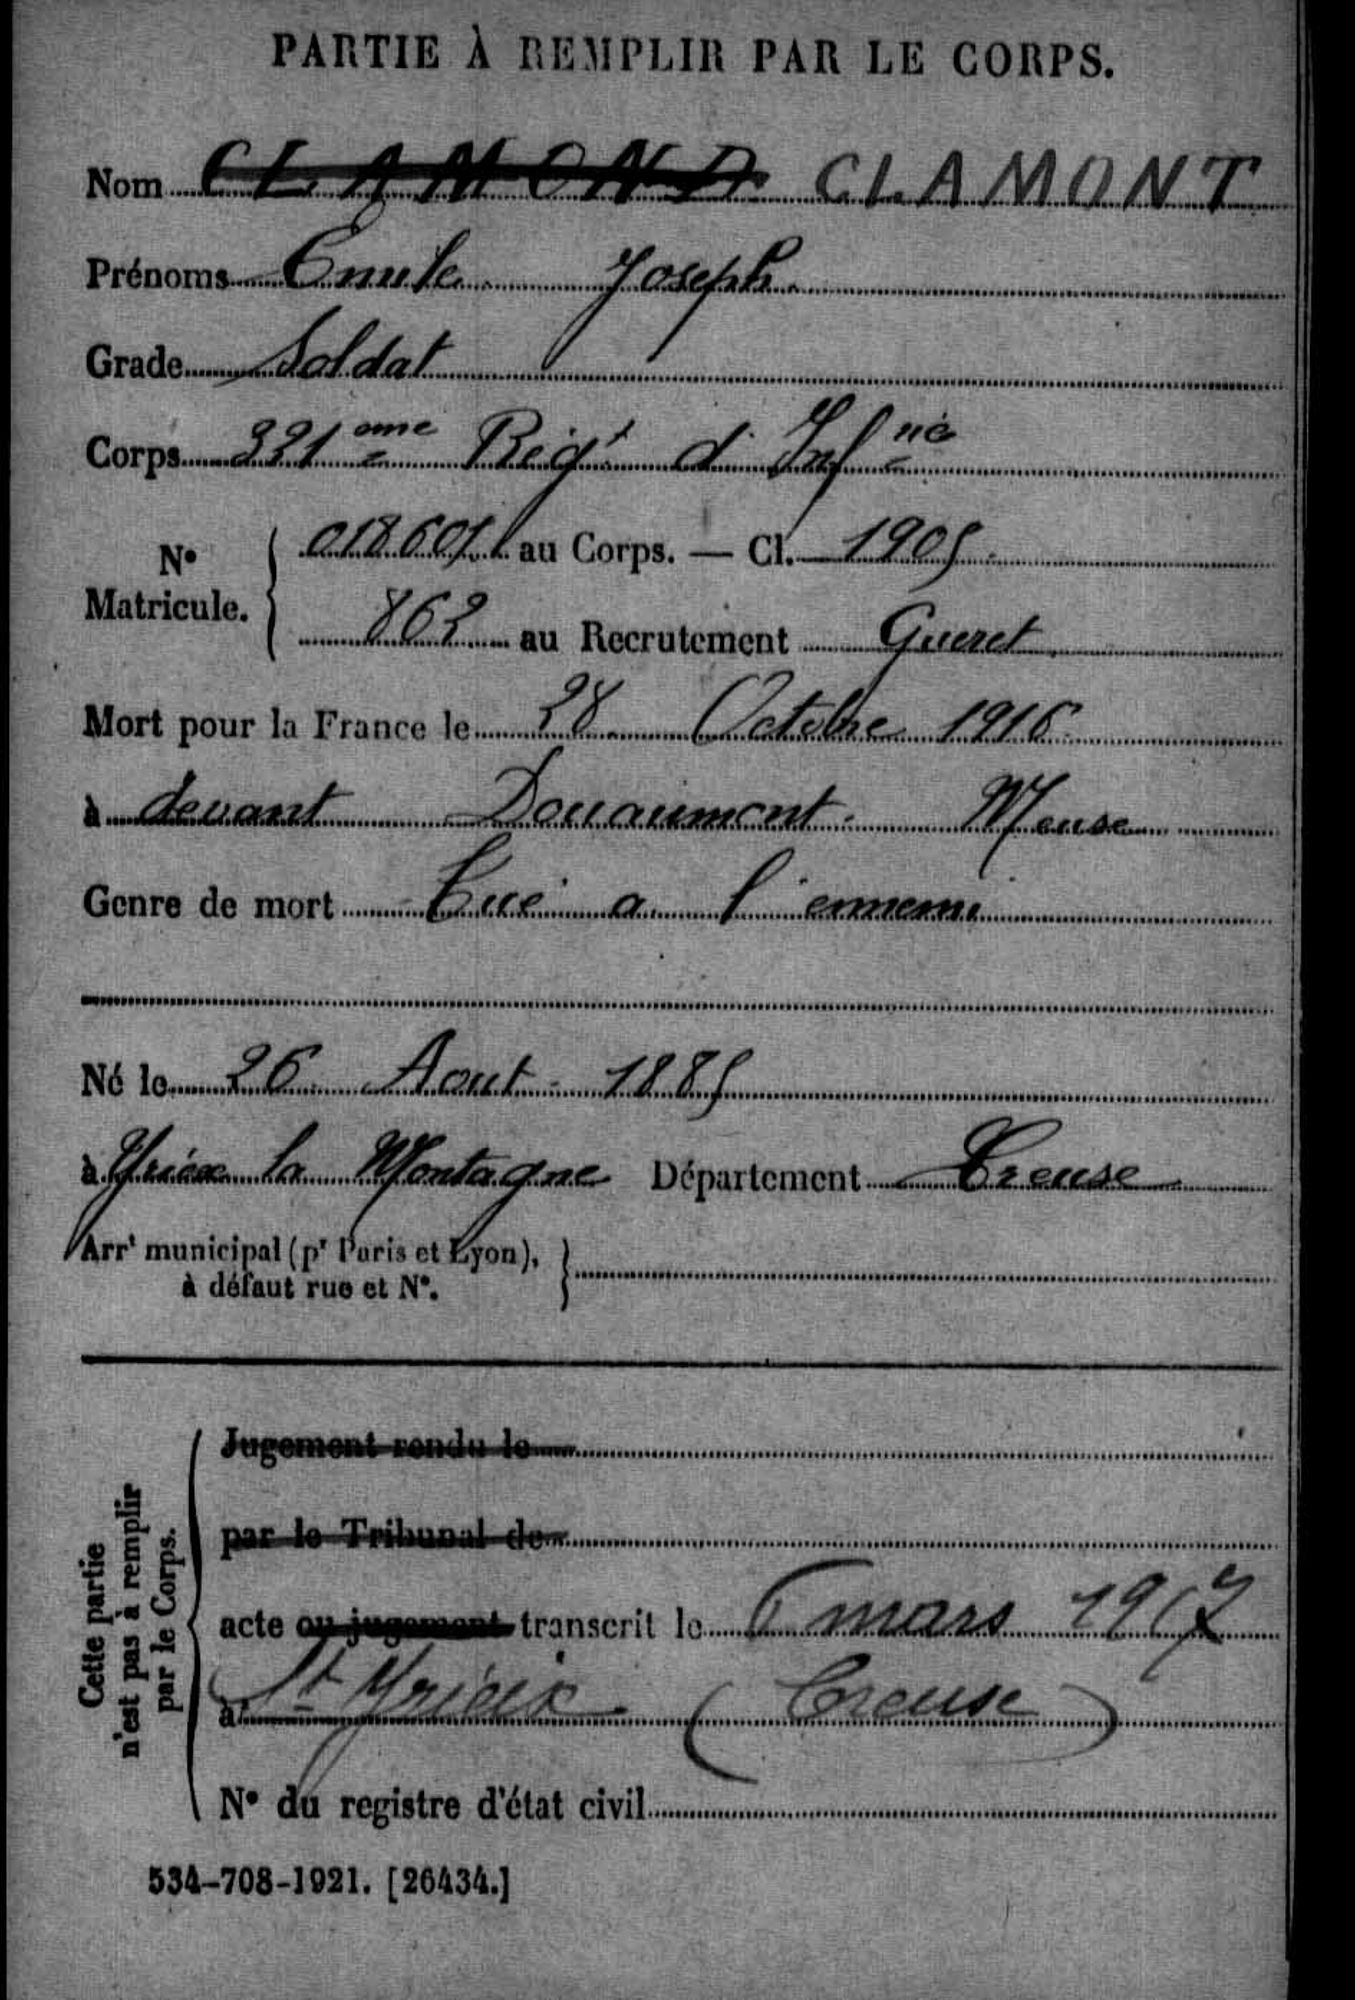 PARTIE À REMPLIR PAR LE CORPS.
Nom CLAMOND CLAMONT
Prénoms Emile Joseph
Grade Soldat
Corps 321eme Régt d'Infrie
No Matricule. { 018601 au Corps. — Cl. 1905
862 au Recrutement Gueret
Mort pour la France le 28 Octobre 1916
à devant Douaumont Meuse
Genre de mort Tué a l'ennemi
Né le 26 Aout 1885
à Yrieix la Montagne Département Creuse
Arrt municipal (pr Paris et Lyon), à défaut rue et No. }
Cette partie n'est pas à remplir par le Corps.
Jugement rendu le
par le Tribunal de
acte ou jugement transcrit le 6 mars 1917
à St Yrieix (Creuse)
No du registre d'état civil
534-708-1921. [26434.]